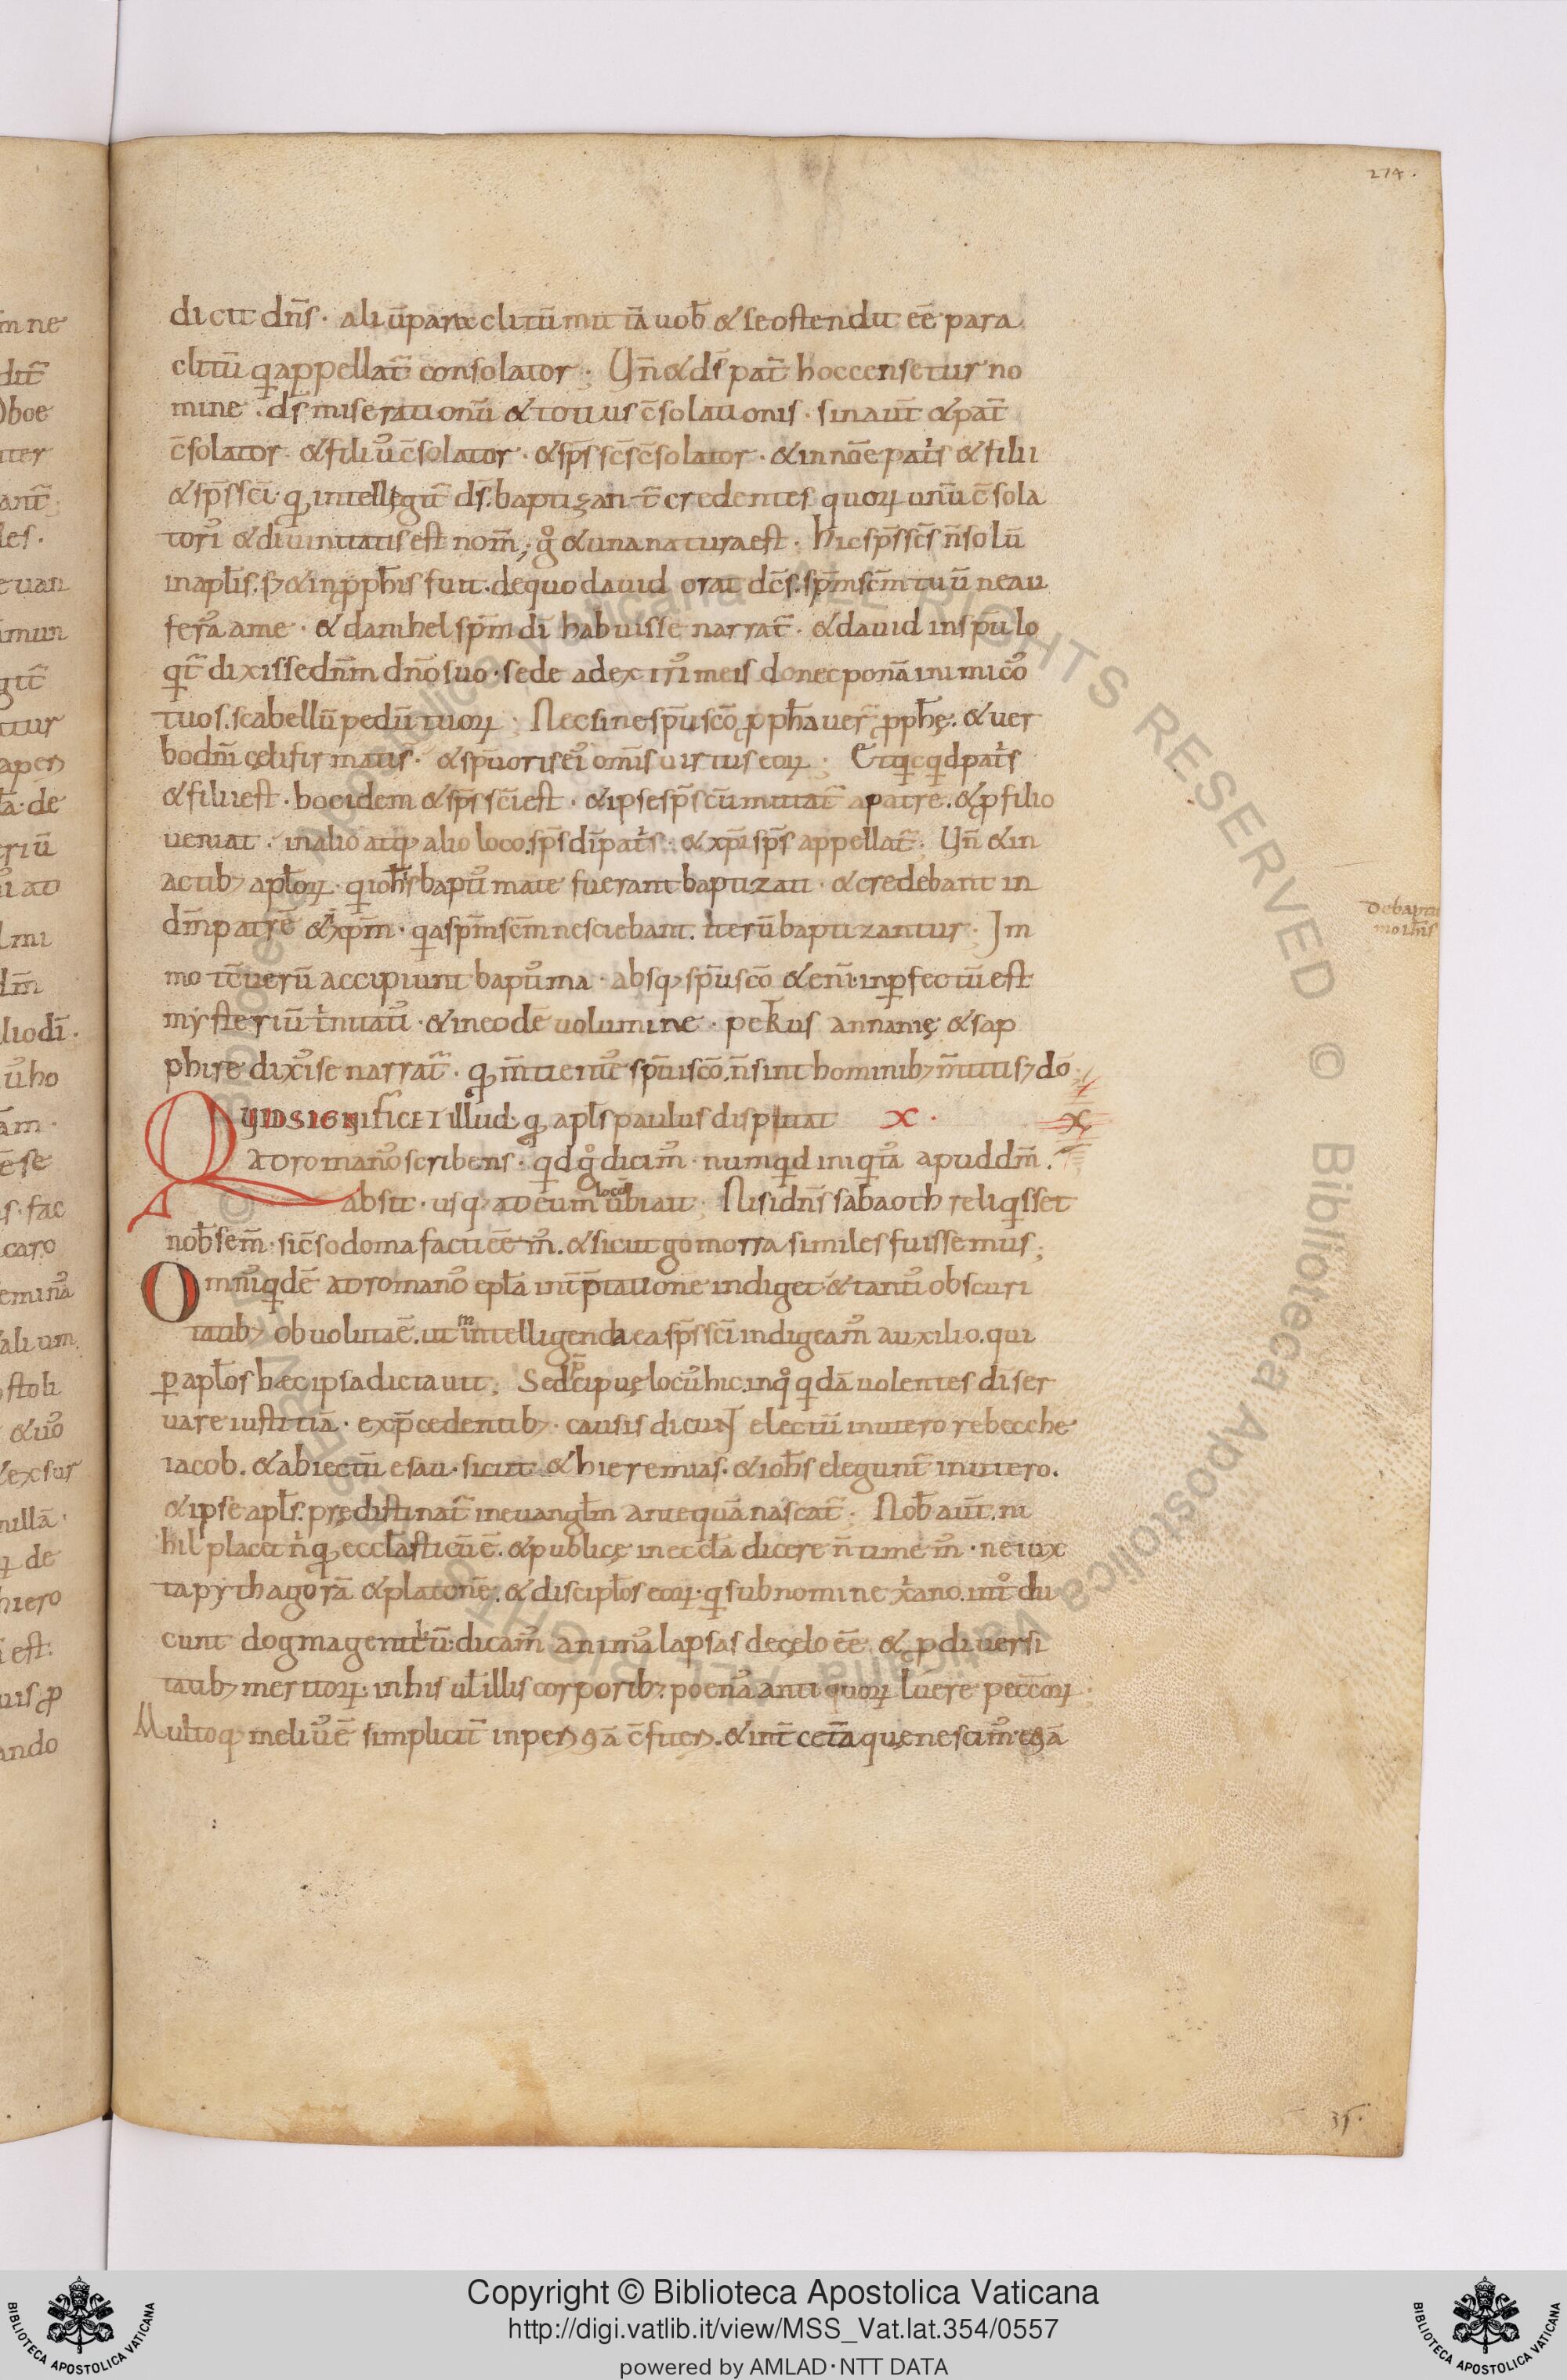 274.
dicit dñs · aliū paraclitū mittā uob̄ & se ostendit ēē para
clitū q̄ appellat̄ consolator ; Vn̄ & ds̄ pat̄ hoc censetur no
mine · ds̄ miserationū & totius c̄solationis · sin aūt & pat̄
c̄solator · & filiꝰ c̄solator · & sp̄s sc̄s c̄solator · & in nōe patˡs & filii
& sp̄s sc̄i · q̄ intellegit̄ ds̄ · baptizant̄ credentes quoꝝ unū c̄sola
torꝭ & diuinitatis est nom̄ ; gͦ & una natura est · Hic sp̄s sc̄s n̄ solū
in apl̄is · sꝫ & in ꝓph̄is fuit · de quo dauid orat dc̄s · sp̄m sc̄m tuū ne au
feras̉ a me · & danihel sp̄m dī habuisse narrat̄ · & dauid in sp̄u lo
qt̄ dixisse dn̄m dn̄o suo · sede a dextrꝭ meis donec ponā inimicos̉
tuos · scabellū pedū tuoꝝ · Nec sine sp̄u sc̄o ꝓph̄auer̄ ꝓph̄ę · & uer
bo dn̄i cęli firmatis̄ · & sp̄u oris ei omīs uirtus eoꝝ ; Et qͥcqͥd patˡs
& filii est · hoc idem & sp̄s sc̄i est · & ipse sp̄s cū mittat̄ a patre · & ꝓ filio
ueniat · in alio atqꝫ alio loco · sp̄s dī patˡs · & xp̄i sp̄s appellat̄ ; Vn̄ & in
actibꝫ apl̄oꝝ · qͥ ioh̄is baptꝭmate fuerant baptizati · & credebant in
dm̄ patrē & xp̄m · qͥa sp̄m sc̄m nesciebant · iterū baptizantur · Im
mo tc̄ uerū accipiunt baptꝭma · absqꝫ sp̄u sc̄o & enī inꝑfectū est
mysteriū tˡnitatꝭ · & in eodē uolumine · petˡus annanię & sap
phire dixꝭse narrat̄ · qͩ m̄titi estꝭ sp̄ui sc̄o · n̄ sint hominibꝫ m̄titi sꝫ dō ·
QUID SIGNIFICET illud · qͩ apl̄s paulus disputat X · X
ad romanos̉ scribens · qͥd gͦ dicimꝰ · numqͥd iniqͥtā apud dm̄ ·
Absit · usqꝫ ad eum locū ubi ait ; Nisi dn̄s sabaoth reliqͥsset
nob̄ sem̄ · sic̄ sodoma facti ēēmꝰ · & sicut gomorra similes fuissemus ;
Omnꝭ qͥdē ad romanos̉ epl̄a int̄p̄tatione indiget · & tantꝭ obscuri
tatibꝫ obuoluta ē · ut in intelligenda ea sp̄s sc̄i indigeamꝰ auxilio · qui
ꝑ apl̄os hæc ipsa dictauit ; Sed p̄cipuę locꝰ hic · in qͦ qͥdā uolentes dī ser
uare iustitiā · ex p̄cedentibꝫ · causis dicunt electū in utero rebecche
iacob · & abiectū esau · sicut & hieremias · & ioh̄s elegunt̄ in utero ·
& ipse apl̄s · prędistinat̄ in euangl̄m antequā nascat̄ ; Nob̄ aūt · ni
hil placet n̄ qͩ eccl̄asticū ē · & publicę in eccl̄a dicere n̄ timemꝰ · ne iux
ta pythagorā & platonē · & discipl̄os eoꝝ · qͥ sub nomine xˡano · intͦdu
cunt dogma gentilˡiū · dicamꝰ animas̉ lapsas de cęlo ēē · & ꝓ diuersi
tatibꝫ meritoꝝ · in his ul̄ illis corporibꝫ · poenas̉ antiquoꝝ luere pecc̄oꝝ ·
Multoqꝫ meliꝰ ē simplicit̄
de baptis
mo ioh̄is
35 ·
Copyright © Biblioteca Apostolica Vaticana
http://digi.vatlib.it/view/MSS_Vat.lat.354/0557
powered by AMLAD·NTT DATA
BIBLIOTECA APOSTOLICA VATICANA
BIBLIOTECA APOSTOLICA VATICANA